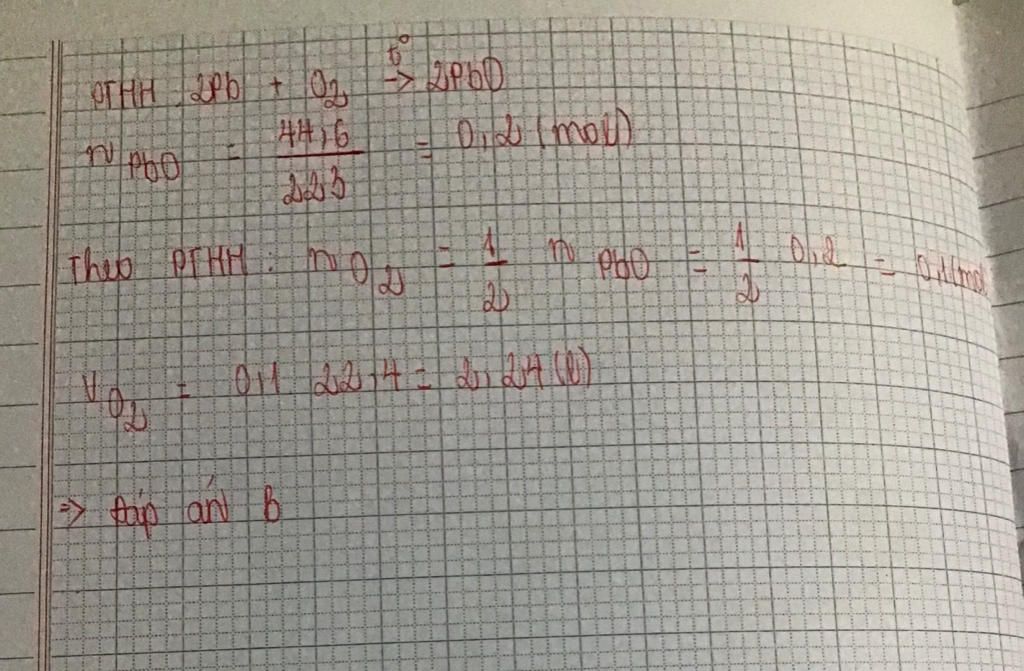 PTHH. 2Pb + O2 t° → 2PbO
n PbO = 44,6 / 223 = 0,2 (mol)
Theo PTHH: n O2 = 1/2 n PbO = 1/2 0,2 = 0,1(mol
V O2 = 0,1 22,4 = 2,24 (l)
=> đáp án B